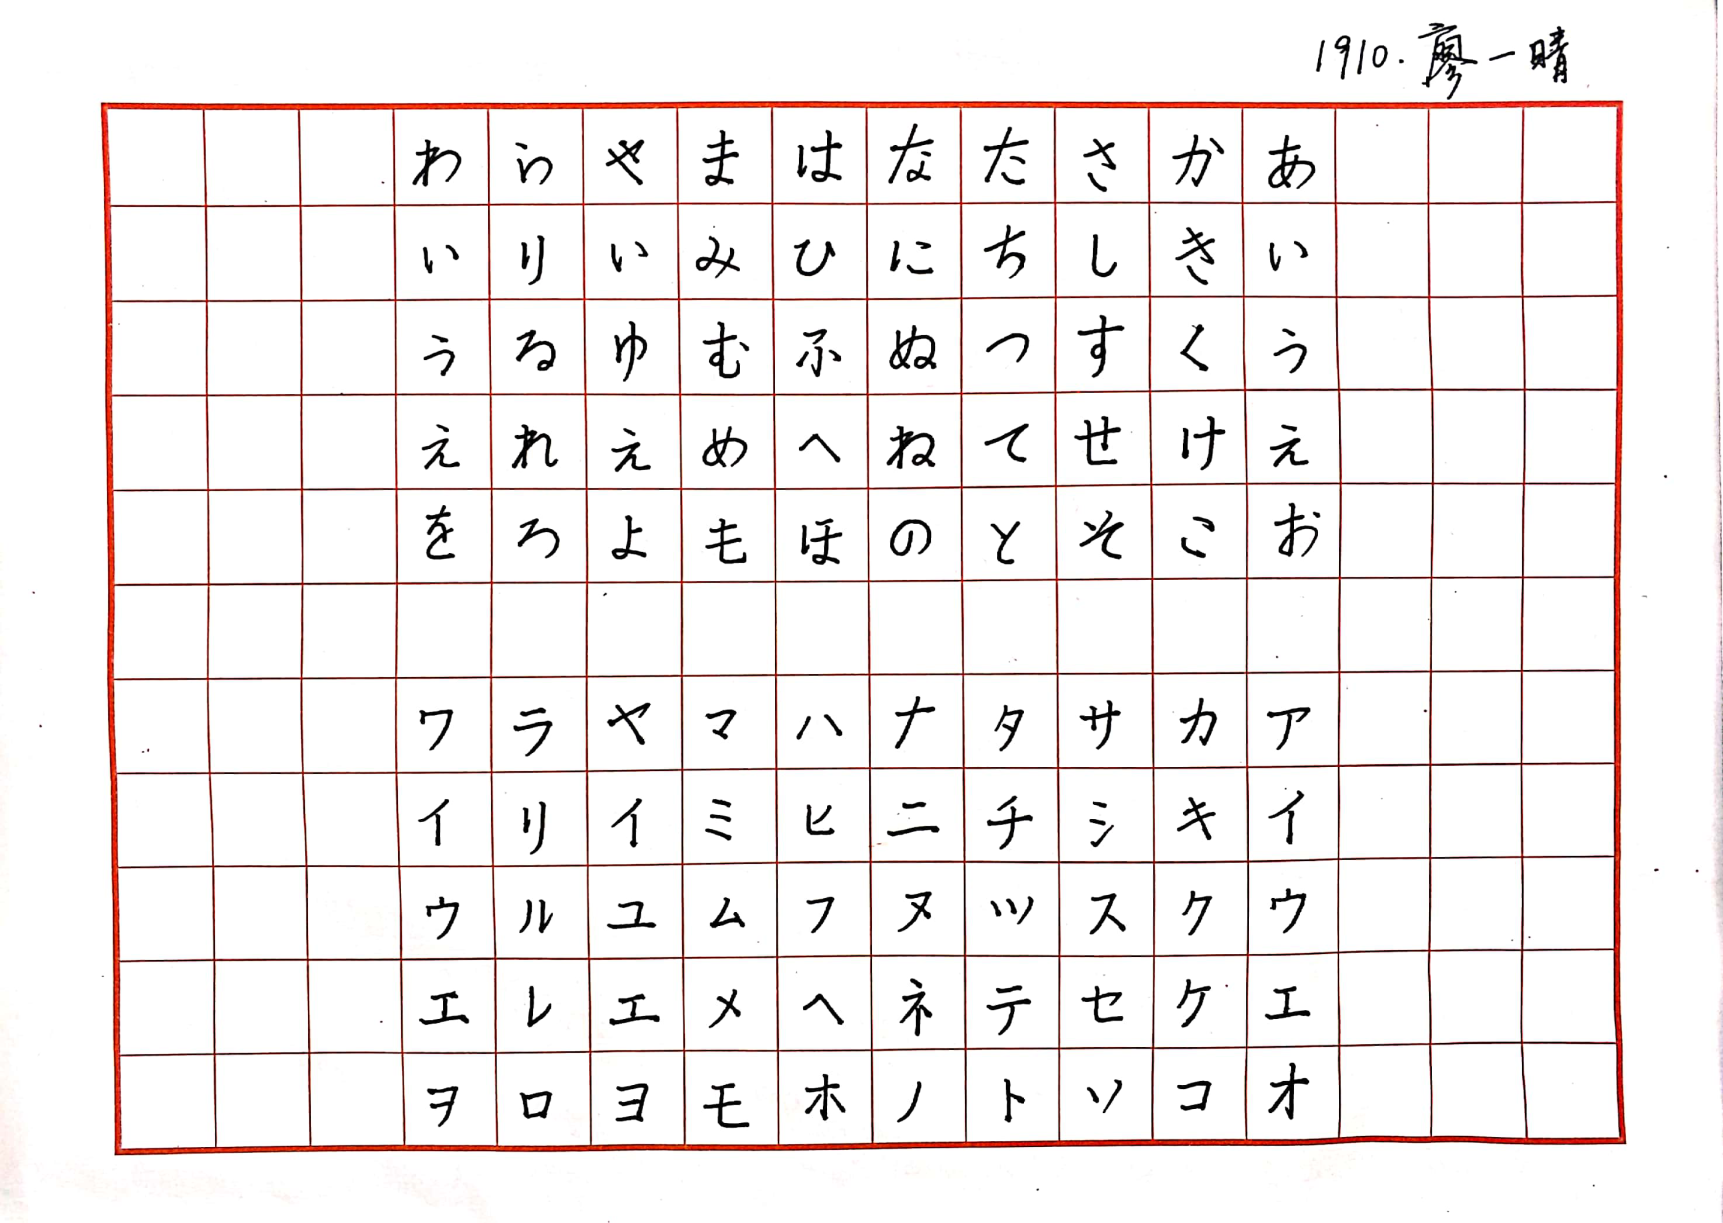 1910. 廖一晴
あいうえお
かきくけこ
さしすせそ
たちつてと
なにぬねの
はひふへほ
まみむめも
やいゆえよ
らりるれろ
わいうえを
アイウエオ
カキクケコ
サシスセソ
タチツテト
ナニヌネノ
ハヒフヘホ
マミムメモ
ヤイユエヨ
ラリルレロ
ワイウエヲ